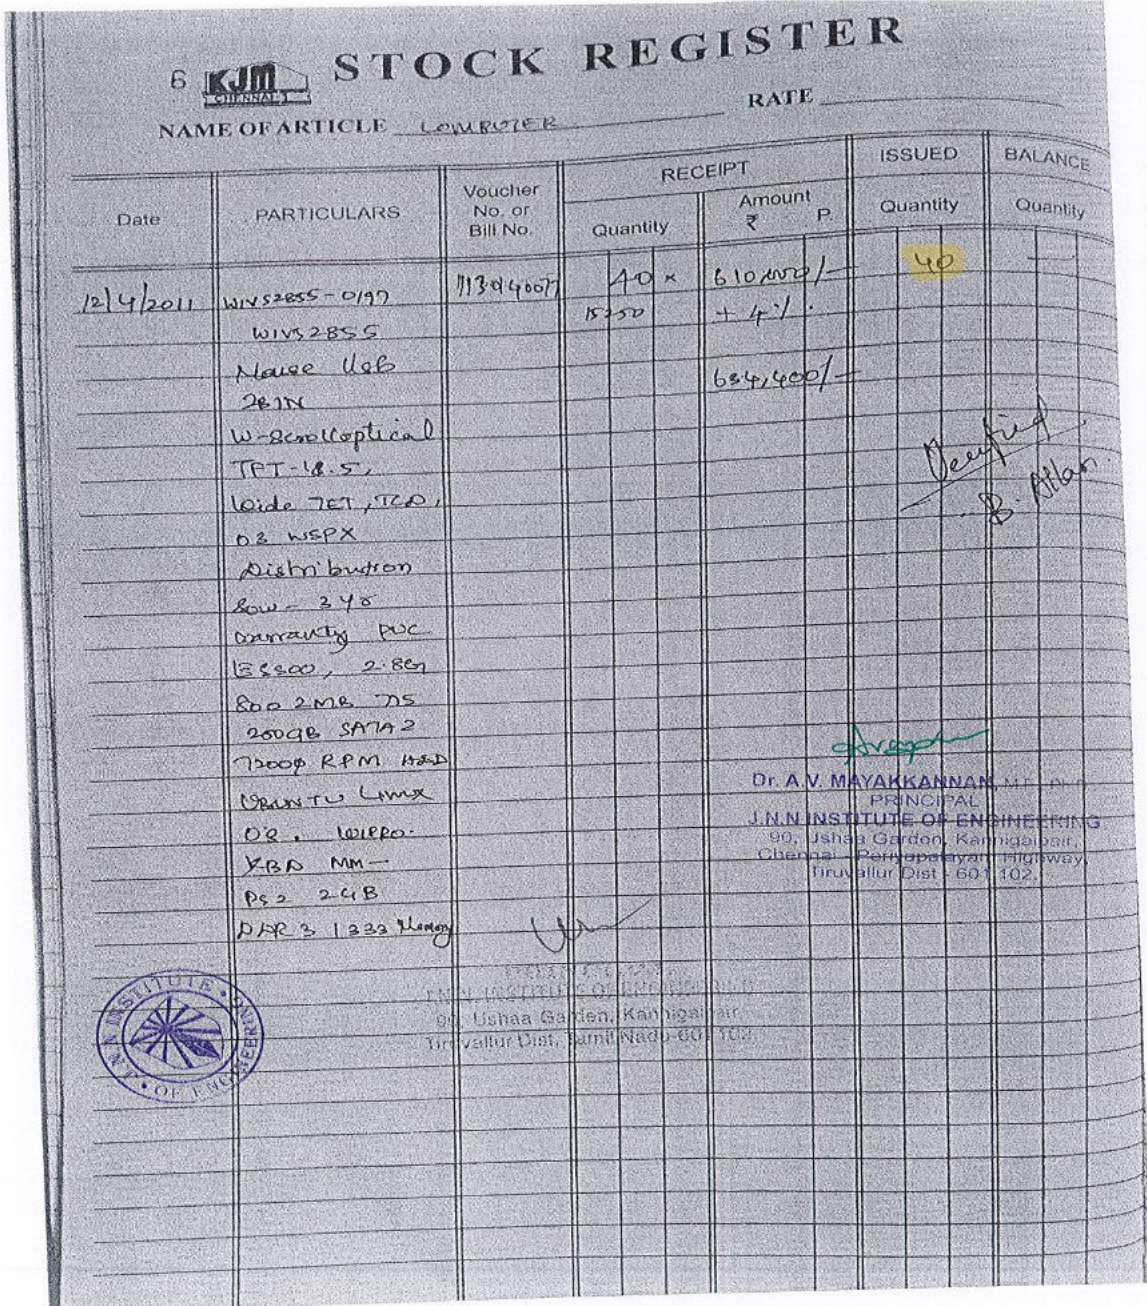 6 KJM CHENNAI STOCK REGISTER
NAME OF ARTICLE COMPUTER RATE
Date PARTICULARS Voucher No. or Bill No. RECEIPT Quantity Amount ₹ P. ISSUED Quantity BALANCE Quantity
12/4/2011 WIV52855-0197 40 × 610,000/- 40
WIV52855 15250 + 4%.
Mouse USB
634,400/-
W-Scrolloptical
TFT-18.5,
Wide TFT, TCO,
Verified
Distribution
3 yr
warranty PVC
2.8G
800 2MB
SATA 2
7200 RPM HDD
UBUNTU Linux
OS. WIPRO.
KBD MM-
PS2 2GB
DDR 3 1333 Memory
Dr. A.V. MAYAKKANNAN, M.E., Ph.D.
PRINCIPAL
J.N.N INSTITUTE OF ENGINEERING
90, Ushaa Garden, Kannigaipair,
Chennai - Periyapalayam Highway,
Tiruvallur Dist - 601 102.
J.N.N. INSTITUTE OF ENGINEERING
90, Ushaa Garden, Kannigaipair,
Tiruvallur Dist, Tamil Nadu-601 102.
J.N.N INSTITUTE • OF ENGINEERING •